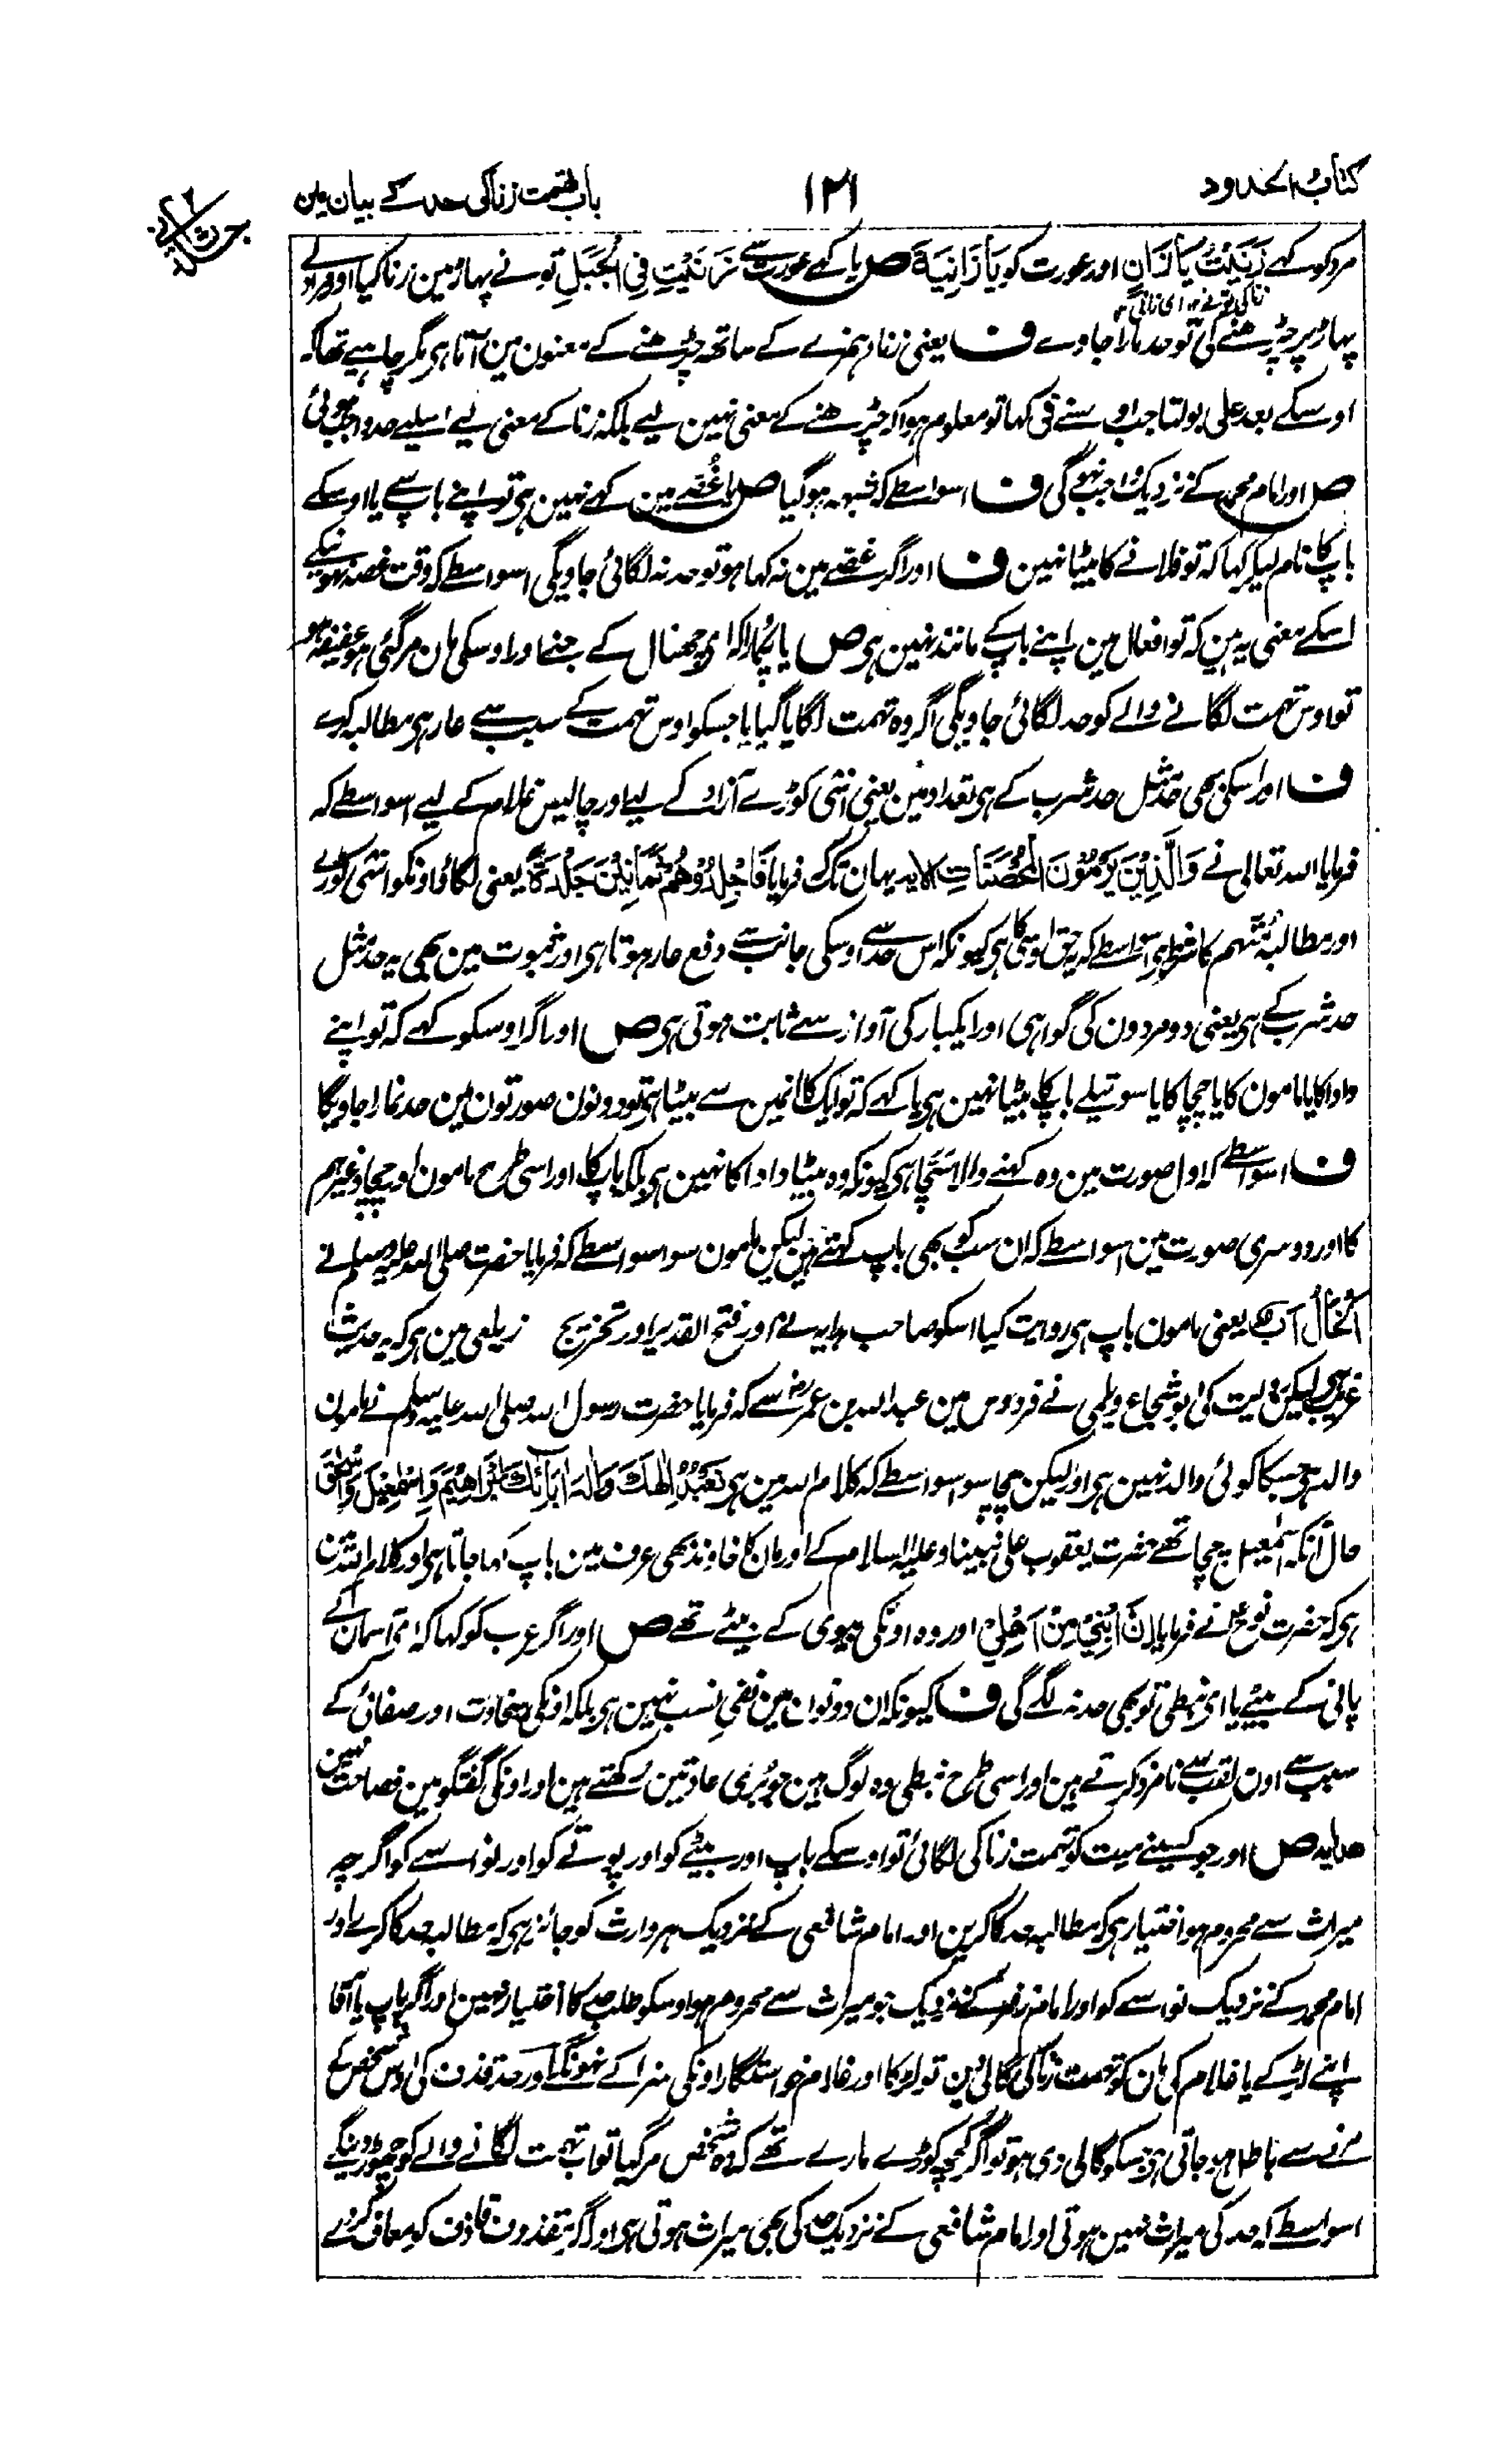 کتاب الحدود
۱۲۱
باب تہمت زنا کی حد کے بیان مین
مرد کو کہے زَنَیْتَ یَا زَانٍ اور عورت کو یَا زَانِیَۃُ ص یا کہے عورت سے زَنَیْتِ فِی الْجَبَلِ تو نے پہاڑ مین زنا کیا اور مراد لے
پہاڑ پر چڑھنے کی تو حد مارا جاوے ف یعنی زنا رہمزے کے ساتھ چڑھنے کے معنون مین آتا ہی مگر چاہیے تھا کہ
اوسکے بعد علی بولتا جب اوسنے فی کہا تو معلوم ہوا کہ چڑھنے کے معنی نہین لیے بلکہ زنا کے معنی لیے اسلیے حد واجب ہوئی
ص اور امام محمد کے نزدیک واجب نہوگی ف اسواسطے کہ شبہہ ہوگیا ص یا غصے مین کہے نہین ہی تو اپنے باپ سے یا اوسکے
باپ کا نام لیکر کہا کہ تو فلانے کا بیٹا نہین ف اور اگر غصے مین نہ کہا ہو تو حد نہ لگائی جاویگی اسواسطے کہ وقت غصہ نہونیکے
اسکے معنی یہ ہین کہ تو افعال مین اپنے باپ کے مانند نہین ہی ص یا پکارا کہ ای چھنال کے جنے اور اوسکی مان مرگئی ہو عفیفہ ہو
تو اوس تہمت لگانے والے کو حد لگائی جاویگی اگر وہ تہمت لگایا گیا یا جسکو اوس تہمت کے سبب سے عار ہی مطالبہ کرے
ف اور اسکی بھی حد مثل حد شرب کے ہی تعداد مین یعنی اسّی کوڑے آزاد کے لیے اور چالیس غلام کے لیے اسواسطے کہ
فرمایا اللہ تعالی نے وَالَّذِیْنَ یَرْمُوْنَ الْمُحْصَنَاتِ الآیہ یہان تک فرمایا فَاجْلِدُوْھُمْ ثَمَانِیْنَ جَلْدَۃً یعنی لگاؤ اونکو اسّی کوڑے
اور مطالبہ متہم کا شرط ہی اسواسطے کہ یہ حق اوسی کا ہی کیونکہ اس حد سے اوسکی جانب سے دفع عار ہوتا ہی اور ثبوت مین بھی یہ حد مثل
حد شرب کے ہی یعنی دو مردون کی گواہی اور ایکبار کی آواز سے ثابت ہوتی ہی ص اور اگر اوسکو کہے کہ تو اپنے
دادا کا یا مامون کا یا چچا کا یا سوتیلے باپ کا بیٹا نہین ہی یا کہے کہ تو ایک کا انمین سے بیٹا ہی تو دونون صورتون مین حد نمارا جاویگا
ف اسواسطے کہ اول صورت مین وہ کہنے والا سچا ہی کیونکہ وہ بیٹا دادا کا نہین ہی بلکہ باپ کا، اور اسی طرح مامون اور چچا وغیرہم
کا اور دوسری صورت مین اسواسطے کہ ان سب کو بھی باپ کہتے ہین لیکن مامون سو اسواسطے کہ فرمایا حضرت صلی اللہ علیہ وسلم نے
اَلْخَالُ اَبٌ یعنی مامون باپ ہی روایت کیا اسکو صاحب ہدایہ نے اور فتح القدیر اور تخریج زیلعی مین ہی کہ یہ حدیث
غریب ہی لیکن روایت کی ابو شجاع ویلمی نے فردوس مین عبد اللہ بن عمر رض سے کہ فرمایا حضرت رسول اللہ صلی اللہ علیہ وسلم نے مامون
والد ہی جسکا کوئی والد نہین ہی اور لیکن چچا سو اسواسطے کہ کلام اللہ مین ہی نَعْبُدُ اِلٰھَكَ وَاِلٰہَ اٰبَائِكَ اِبْرَاھِیْمَ وَاِسْمٰعِیْلَ وَاِسْحٰقَ
حال آنکہ اسمٰعیل چچا تھے حضرت یعقوب علی نبینا وعلیہ السلام کے اور مان کا خاوند بھی عرف مین باپ کہا جاتا ہی اور کلام اللہ مین
ہی کہ حضرت نوح نے فرمایا اِنَّ ابْنِیْ مِنْ اَھْلِیْ اور وہ اونکی بیوی کے بیٹے تھے ص اور اگر عرب کو کہا کہ ای آسمان کے
پانی کے بیٹے یا ای نبطی تو بھی حد نہ لگے گی ف کیونکہ ان دونون مین نفی نسب نہین ہی بلکہ انکی سخاوت اور صفائی کے
سبب سے اون لقب سے نامزد کرتے ہین اور اسی طرح نبطی وہ لوگ ہین جو بُری عادتین رکھتے ہین اور اونکی گفتگو مین فصاحت نہین
ھدایہ ص اور جو کسینے میت کو تہمت زنا کی لگائی تو اوسکے باپ اور بیٹے کو اور پوتے کو اور نواسے کو اگرچہ
میراث سے محروم ہو اختیار ہی کہ مطالبہ حد کا کرین اور امام شافعی کے نزدیک ہر وارث کو جائز ہی کہ مطالبہ حد کا کرے اور
امام محمد کے نزدیک نواسے کو اور امام زفر کے نزدیک جو میراث سے محروم ہو اوسکو طلب حد کا اختیار نہین اور اگر باپ یا آقا
اپنے لڑکے یا غلام کی مان کو تہمت زنا کی لگائین تو لڑکا اور غلام خواستگار اونکی سزا کے نہونگے اور حد قذف کی اوس شخص کے
مرنے سے باطل ہو جاتی ہی جسکو گالی دی ہو تو اگر کچھ کوڑے مارے تھے کہ وہ شخص مرگیا تو اب تہمت لگانے والے کو چھوڑ دینگے
اسواسطے کہ حد کی میراث نہین ہوتی اور امام شافعی کے نزدیک حد کی بھی میراث ہوتی ہی اور اگر مقذوف قاذف کو معاف کردے